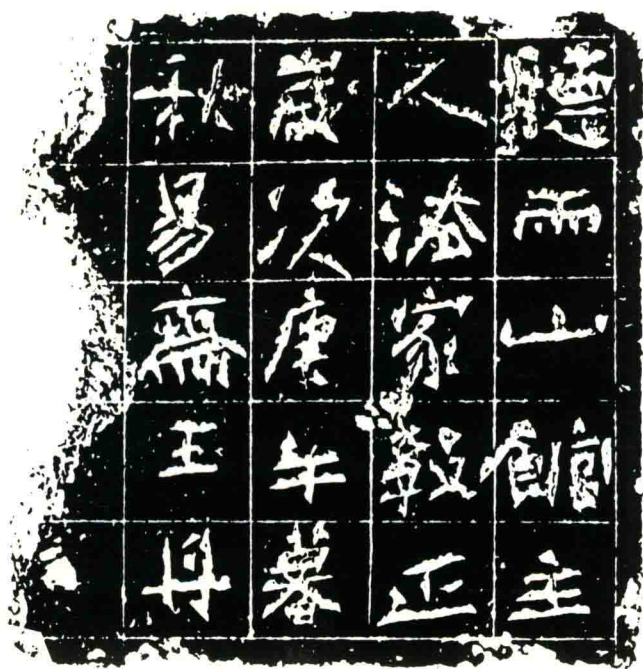 聽雨山館主
人法家教正
歲次庚午暮
秋易齋王丹